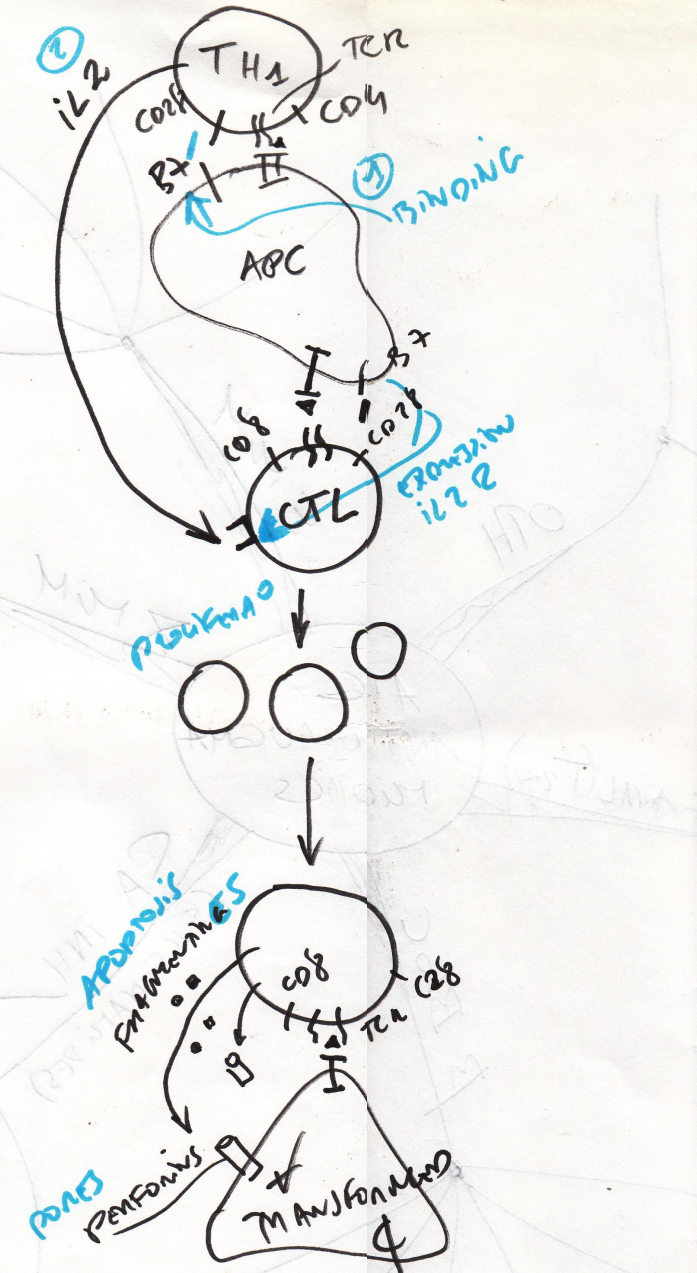 2
IL2
TH1
TCR
CD28
CD4
B7
1
BINDING
APC
B7
CD8
CD28
EXPRESSION
IL2R
CTL
PROLIFERA°
APOPTOSIS
CD8
C28
TCR
PORES
PERFORINS
TRANSFORMED